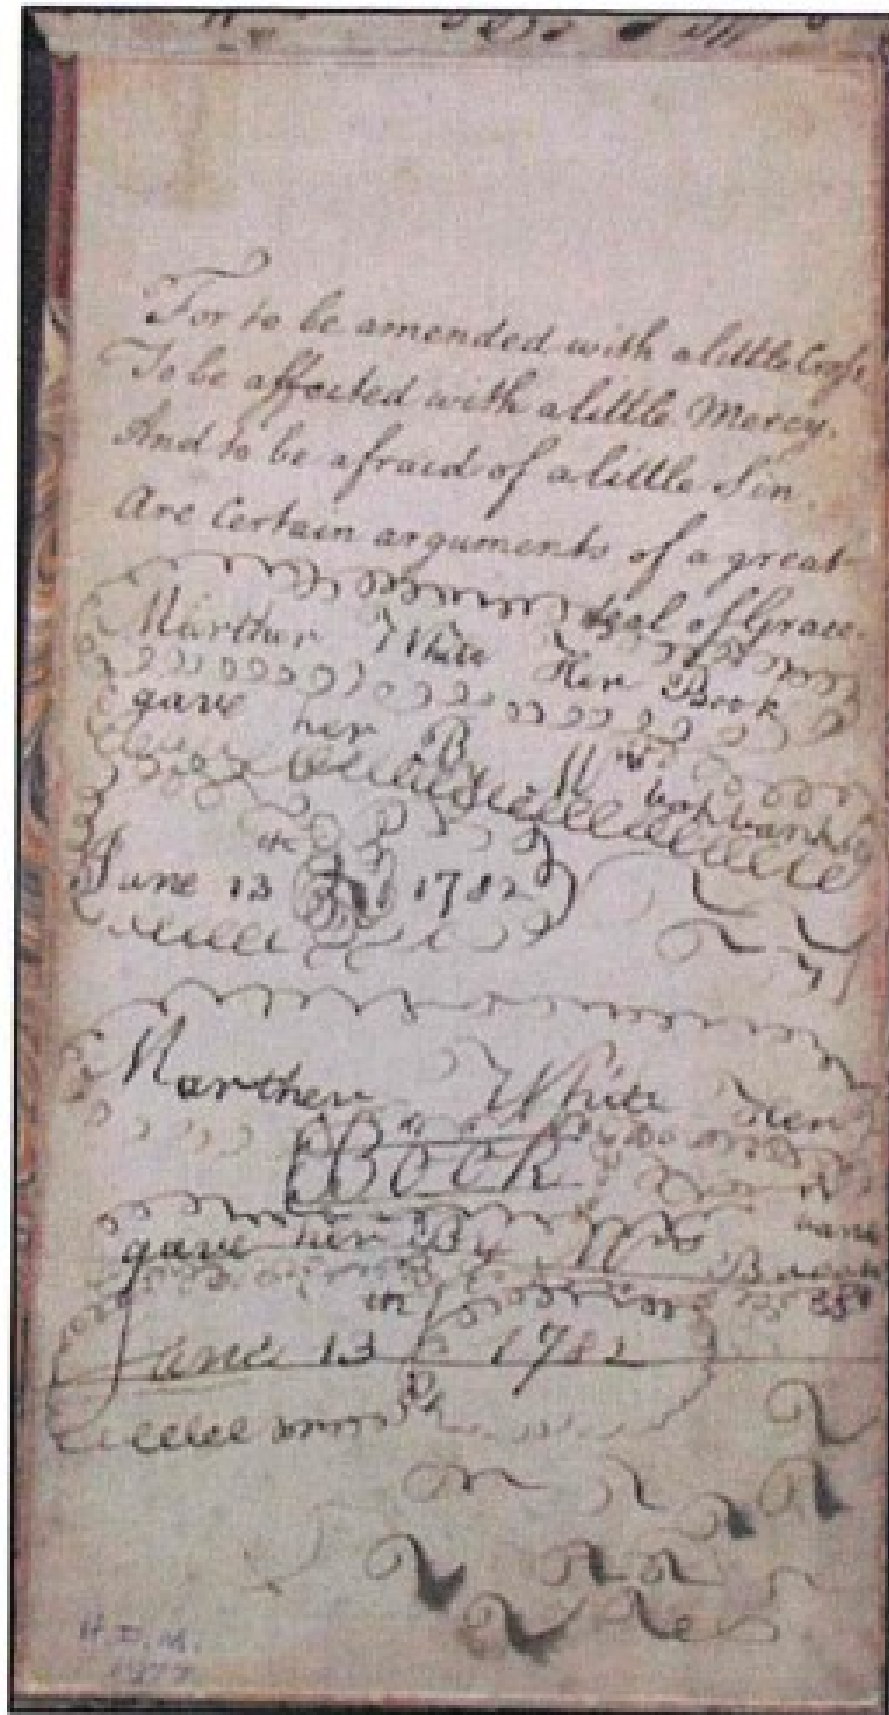 For to be amended with a little Cross
To be affected with a little Mercy.
And to be afraid of a little Sin.
Are Certain arguments of a great
deal of Grace.
Marther White Her Book
gave her B
June 13 1782
Marther White Her
Book
gave her By
June 13 1782
H.D.M.